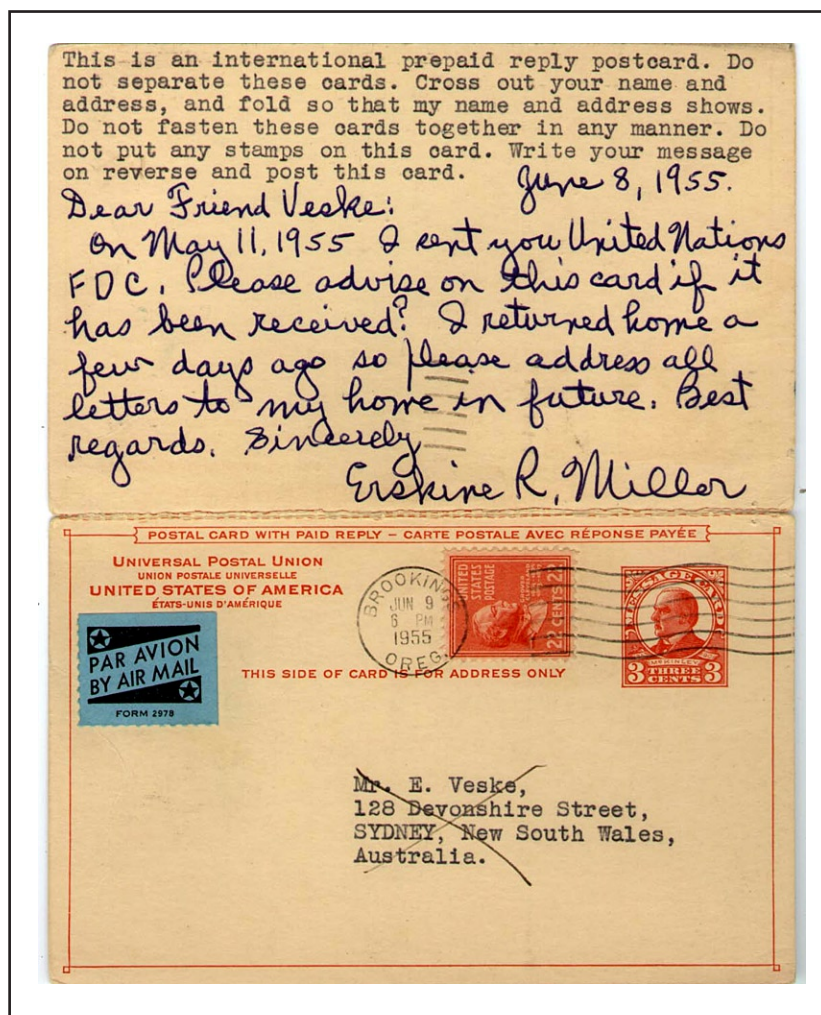 This is an international prepaid reply postcard. Do
not separate these cards. Cross out your name and
address, and fold so that my name and address shows.
Do not fasten these cards together in any manner. Do
not put any stamps on this card. Write your message
on reverse and post this card.
June 8, 1955.
Dear Friend Veske:
On May 11, 1955 I sent you United Nations
FDC. Please advise on this card if it
has been received? I returned home a
few days ago so please address all
letters to my home in future. Best
regards. Sincerely
Erskine R. Miller
POSTAL CARD WITH PAID REPLY – CARTE POSTALE AVEC RÉPONSE PAYÉE
UNIVERSAL POSTAL UNION
UNION POSTALE UNIVERSELLE
UNITED STATES OF AMERICA
ÉTATS-UNIS D'AMÉRIQUE
PAR AVION
BY AIR MAIL
FORM 2978
BROOKINGS
JUN 9
6 PM
1955
OREG.
UNITED
STATES
POSTAGE
22 CENTS 22
MESSAGE CARD
McKINLEY
3 THREE 3
CENTS
THIS SIDE OF CARD IS FOR ADDRESS ONLY
Mr. E. Veske,
128 Devonshire Street,
SYDNEY, New South Wales,
Australia.